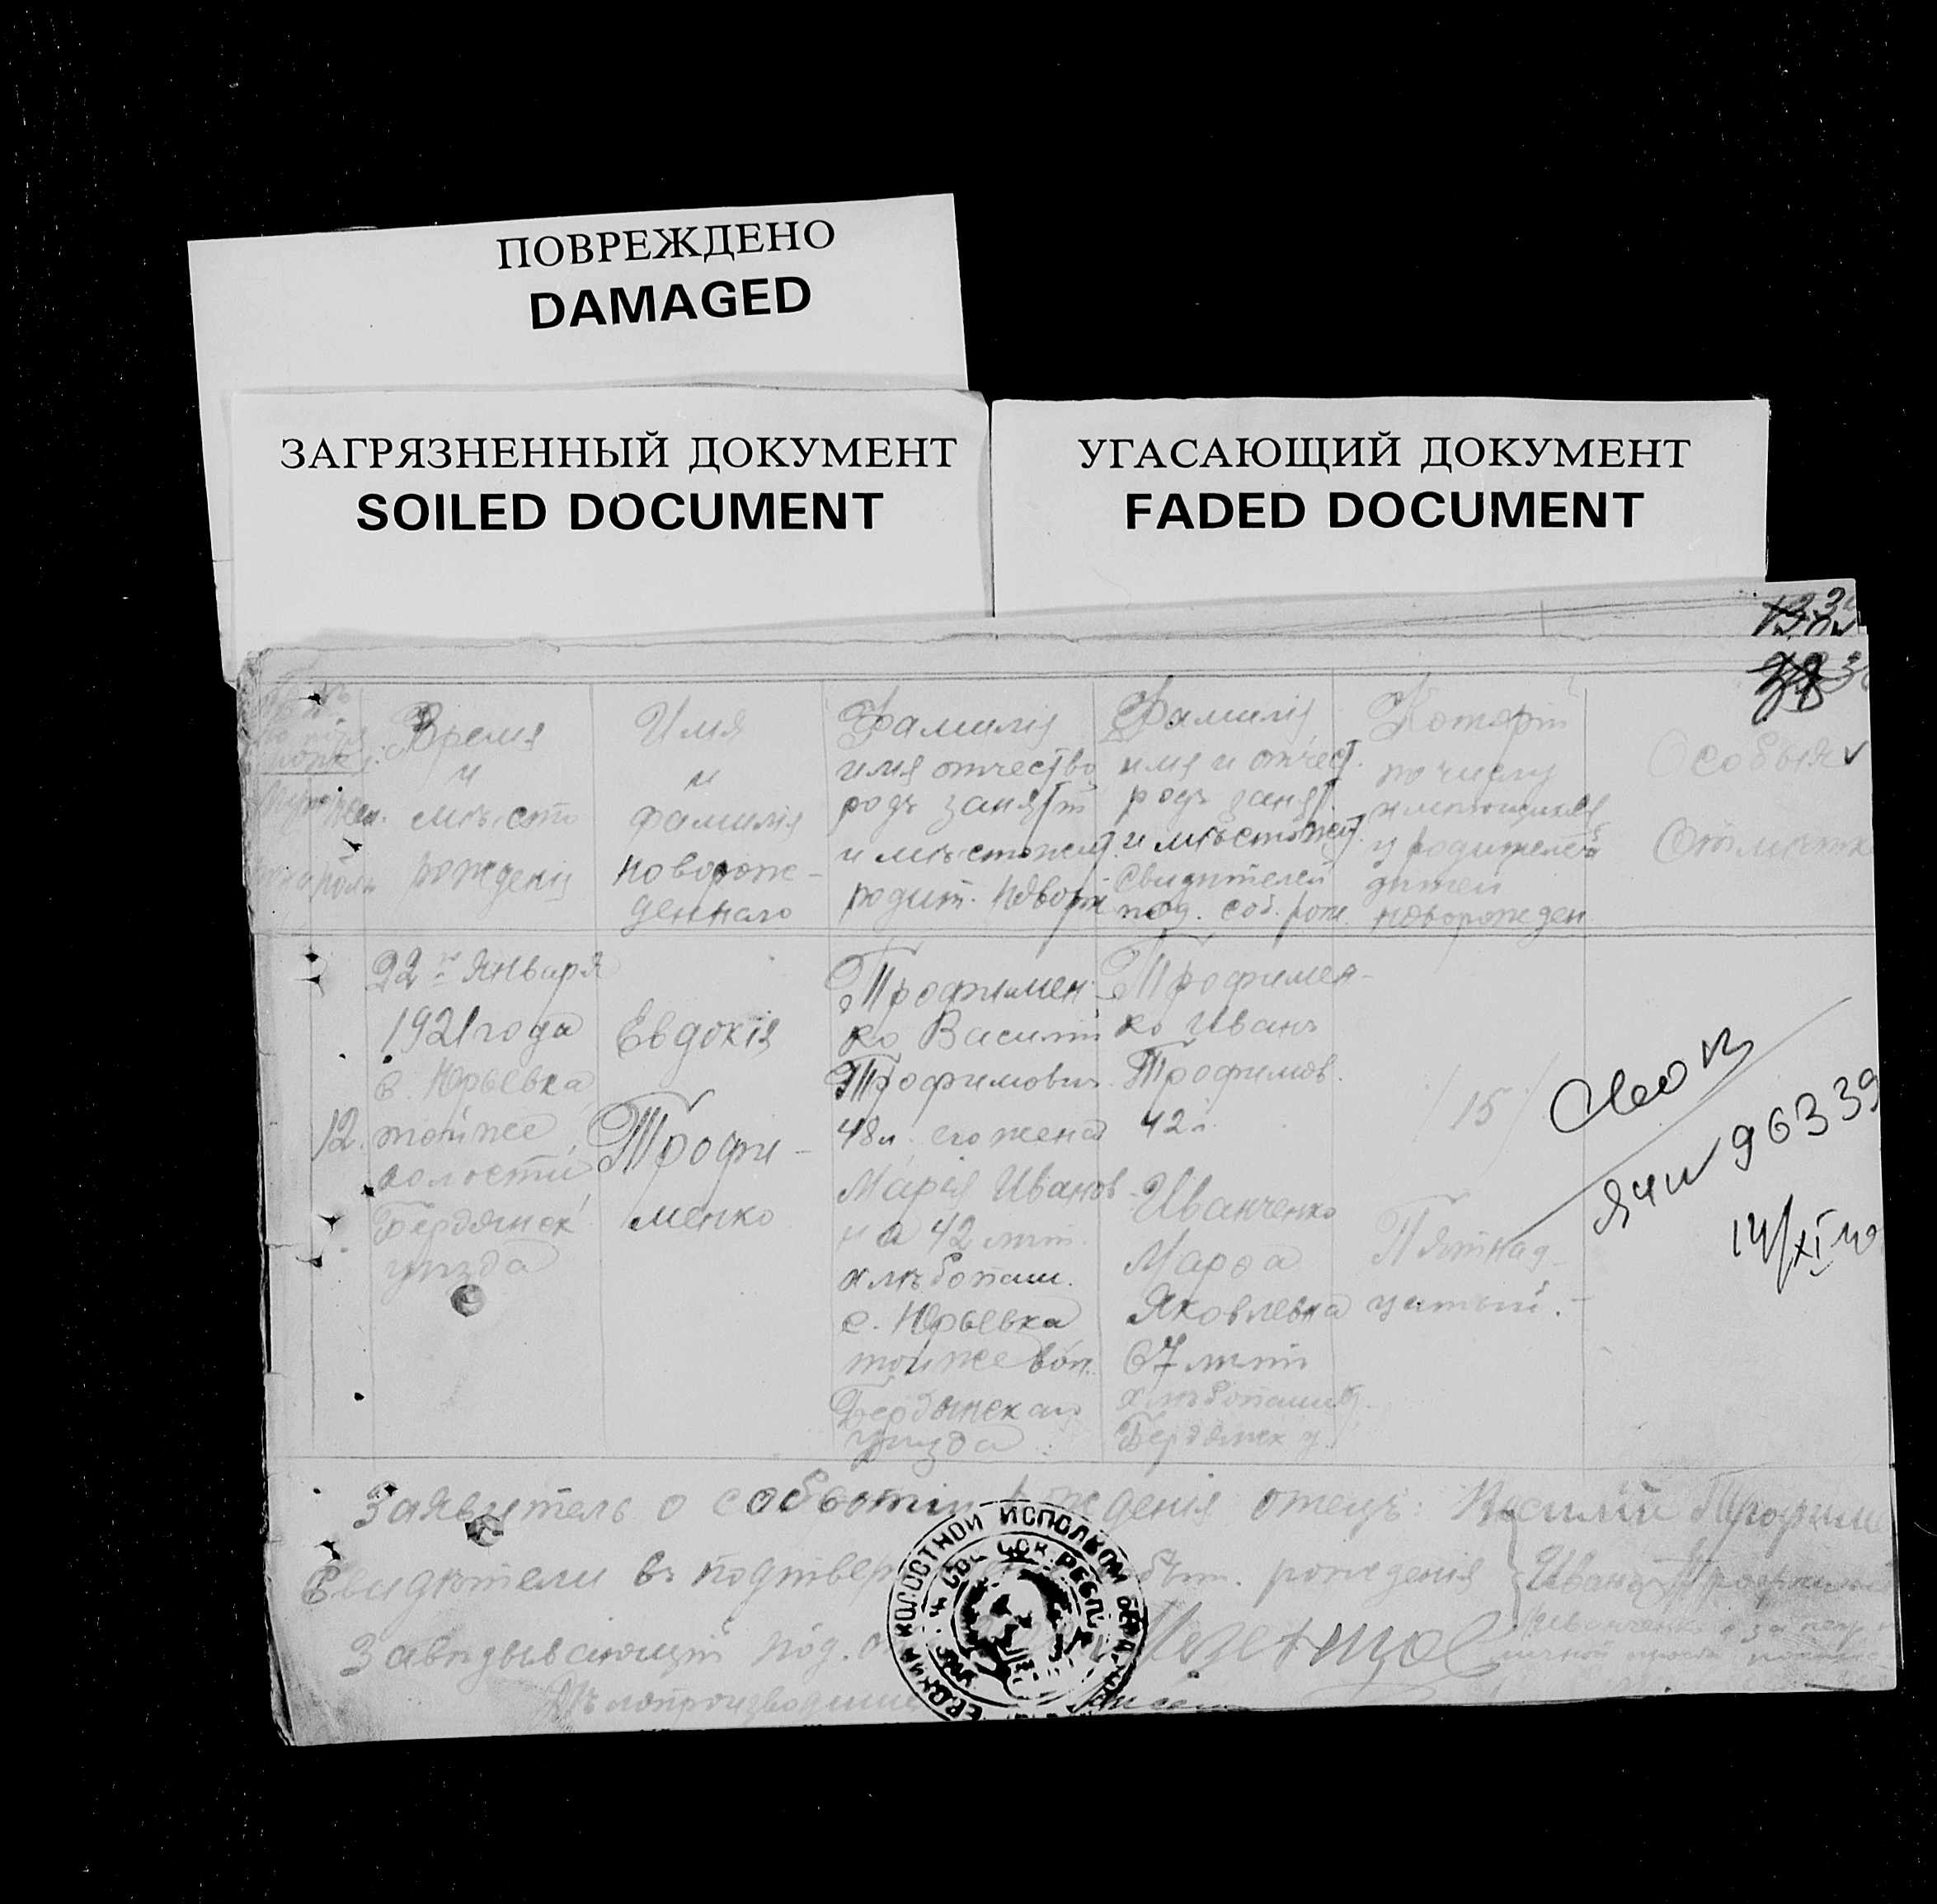 ПОВРЕЖДЕНО
DAMAGED
ЗАГРЯЗНЕННЫЙ ДОКУМЕНТ
SOILED DOCUMENT
УГАСАЮЩИЙ ДОКУМЕНТ
FADED DOCUMENT
Время
и
мѣсто
рожденія
Имя
и
фамилія
новорож-
деннаго
Фамилія
имя отчество
родъ занят
и мѣстожит.
родит. новорж
Фамилія
имя и отчест.
родъ занят.
и мѣстожит.
свидѣтелей
под. соб. рож.
Который
по числу
имеющихся
у родителей
дѣтей
новорожден
Особыя
Отмѣтк
12.
22 го Января
1921 года
с. Юрьевка
тойже
волости
Бердянск
уѣзда
Евдокія
Трофи-
менко
Трофимен-
ко Василій
Трофимович
48 л. его жена
Марія Иванов-
на 42 лѣт.
хлѣбопаш.
с. Юрьевка
тойже вол.
Бердянскаго
уѣзда
Трофимен-
ко Иванъ
Трофимов.
42 л.
Иванченко
Марфа
Яковлевна
67 лѣтъ
хлѣбопашц.
Бердянск у.
/15/
Пятнад-
цатый.
96339
14/XI 40
Заявитель о событіи рожденія отецъ: Василій Трофиме
Свидѣтели въ подтвер быт. рожденія Иванъ Трофиме
Завѣдывающій под. о
Дѣлопроизводител
ВОЛОСТНОЙ ИСПОЛКОМ БЕРДЯН
УКР. СОЦ. СОВ. РЕСП.